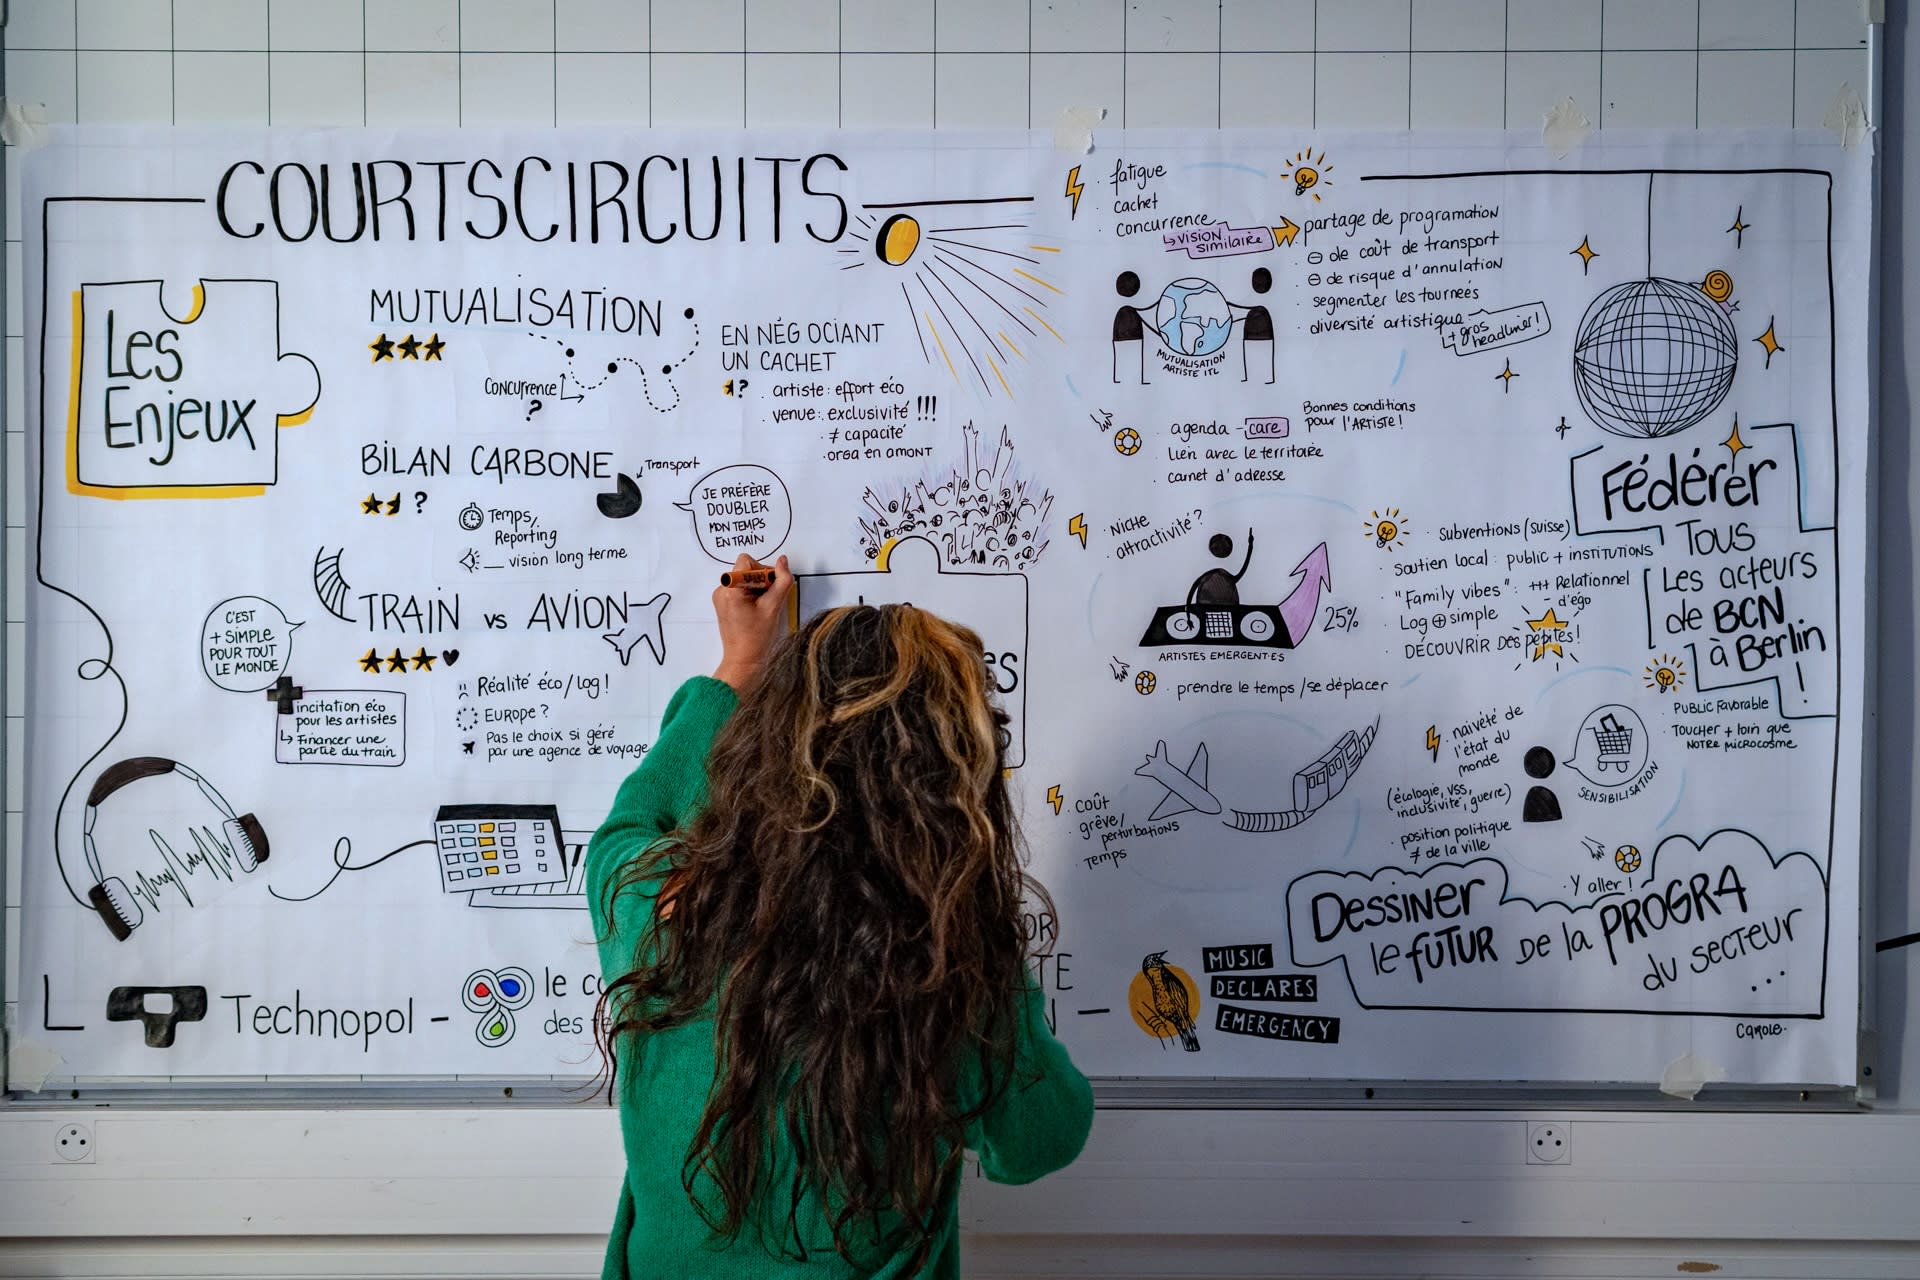 COURTSCIRCUITS
Les
Enjeux
MUTUALISATION
Concurrence
?
EN NÉGOCIANT
UN CACHET
?
. artiste: effort éco
venue: exclusivité !!!
. ≠ capacité
. orga en amont
BILAN CARBONE
?
Transport
Temps/
Reporting
vision long terme
JE PRÉFÈRE
DOUBLER
MON TEMPS
EN TRAIN
TRAIN vs AVION
C'EST
+ SIMPLE
POUR TOUT
LE MONDE
incitation éco
pour les artistes
↳ Financer une
partie du train
Réalité éco/log !
EUROPE ?
Pas le choix si géré
par une agence de voyage
es
s
Technopol -
le co
des
OR
TE
N -
MUSIC
DECLARES
EMERGENCY
. fatigue
. cachet
. concurrence
↳ VISION
similaire
partage de programation
. ⊖ de coût de transport
. ⊖ de risque d'annulation
. segmenter les tournées
. diversité artistique
↳ + gros
headliner !
MUTUALISATION
ARTISTE ITL
. agenda - care
. Lien avec le territoire
. carnet d'adresse
Bonnes conditions
pour l'ARTiste !
. NICHE
attractivité ?
25%
ARTISTES EMERGENT·ES
. Subventions (suisse)
. Soutien local : public + institutions
. "Family vibes" : +++ Relationnel
- d'égo
. Log ⊕ simple
. DÉCOUVRIR DES pépites !
. prendre le temps / se déplacer
. coût
. grève/
perturbations
. Temps
. naïveté de
l'état du
monde
(écologie, vss,
inclusivité, guerre)
. position politique
≠ de la ville
SENSIBILISATION
. Y aller !
. PUBLIC Favorable
. TOUCHER + loin que
NOTRE MICROCOSME
Fédérer
Tous
Les acteurs
de BCN
à Berlin
!
Dessiner
le fuTUR De la PROGRA
du secteur
...
Carole.